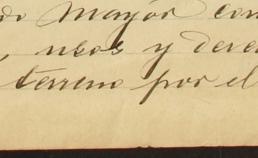 do mayor con
, usos y derec
terreno por el